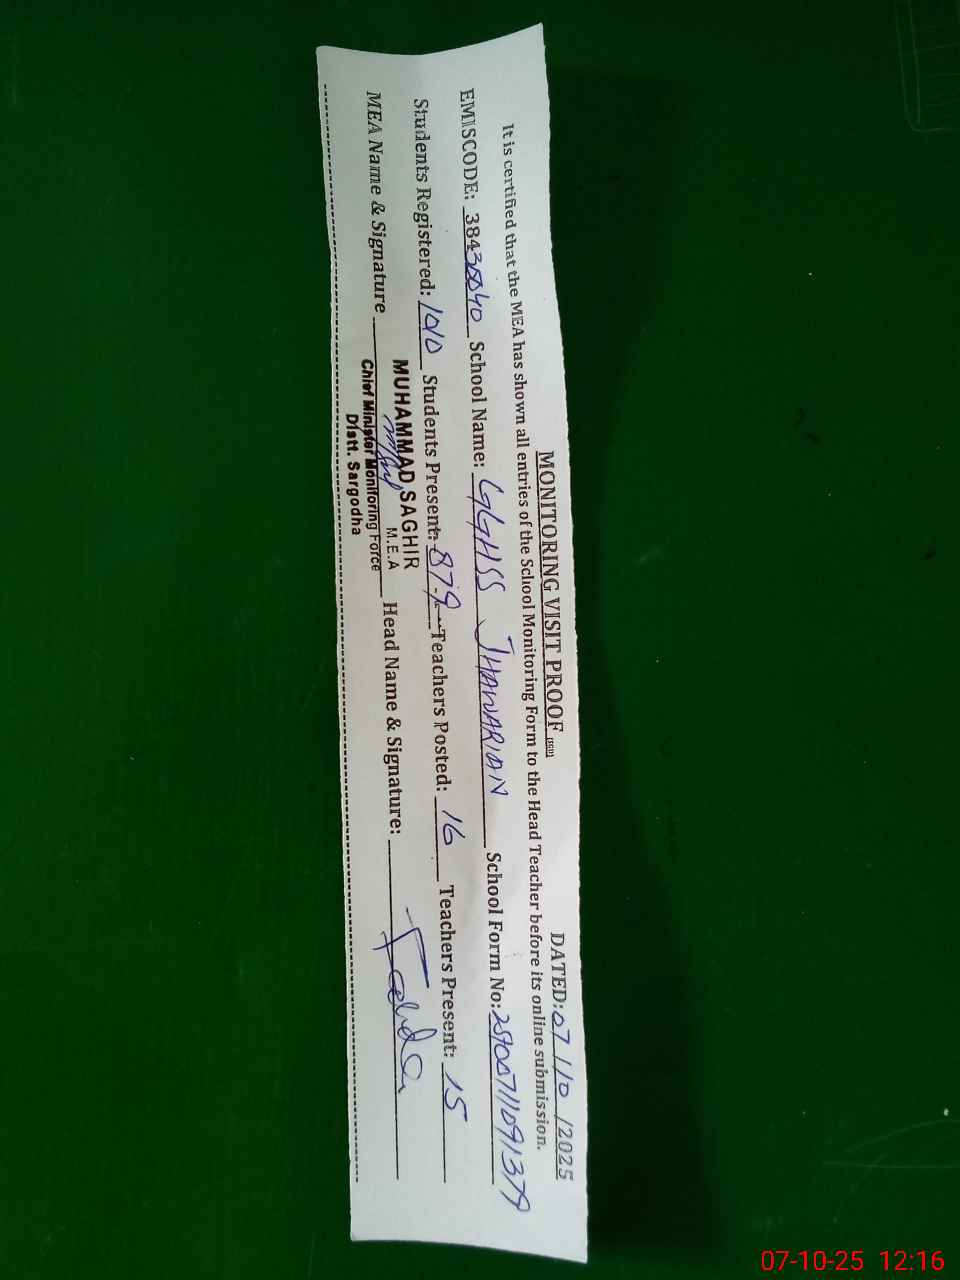 MONITORING VISIT PROOF
DATED: 07/10/2025
It is certified that the MEA has shown all entries of the School Monitoring Form to the Head Teacher before its online submission.
EMISCODE: 38430040 School Name: GGHSS JHAWARIAN School Form No:
Students Registered: 1010 Students Present: 879 Teachers Posted: 16 Teachers Present: 15
MEA Name & Signature Head Name & Signature:
MUHAMMAD SAGHIR
M.E.A
Chief Minister Monitoring Force
Distt. Sargodha
07-10-25 12:16